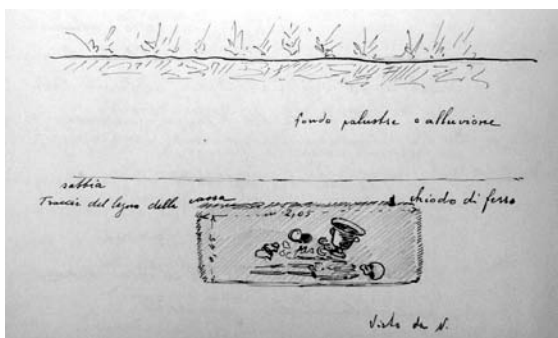 fondo palustre o alluvione
sabbia
Traccie del legno della cassa
chiodo di ferro
2,05
Vista da N.